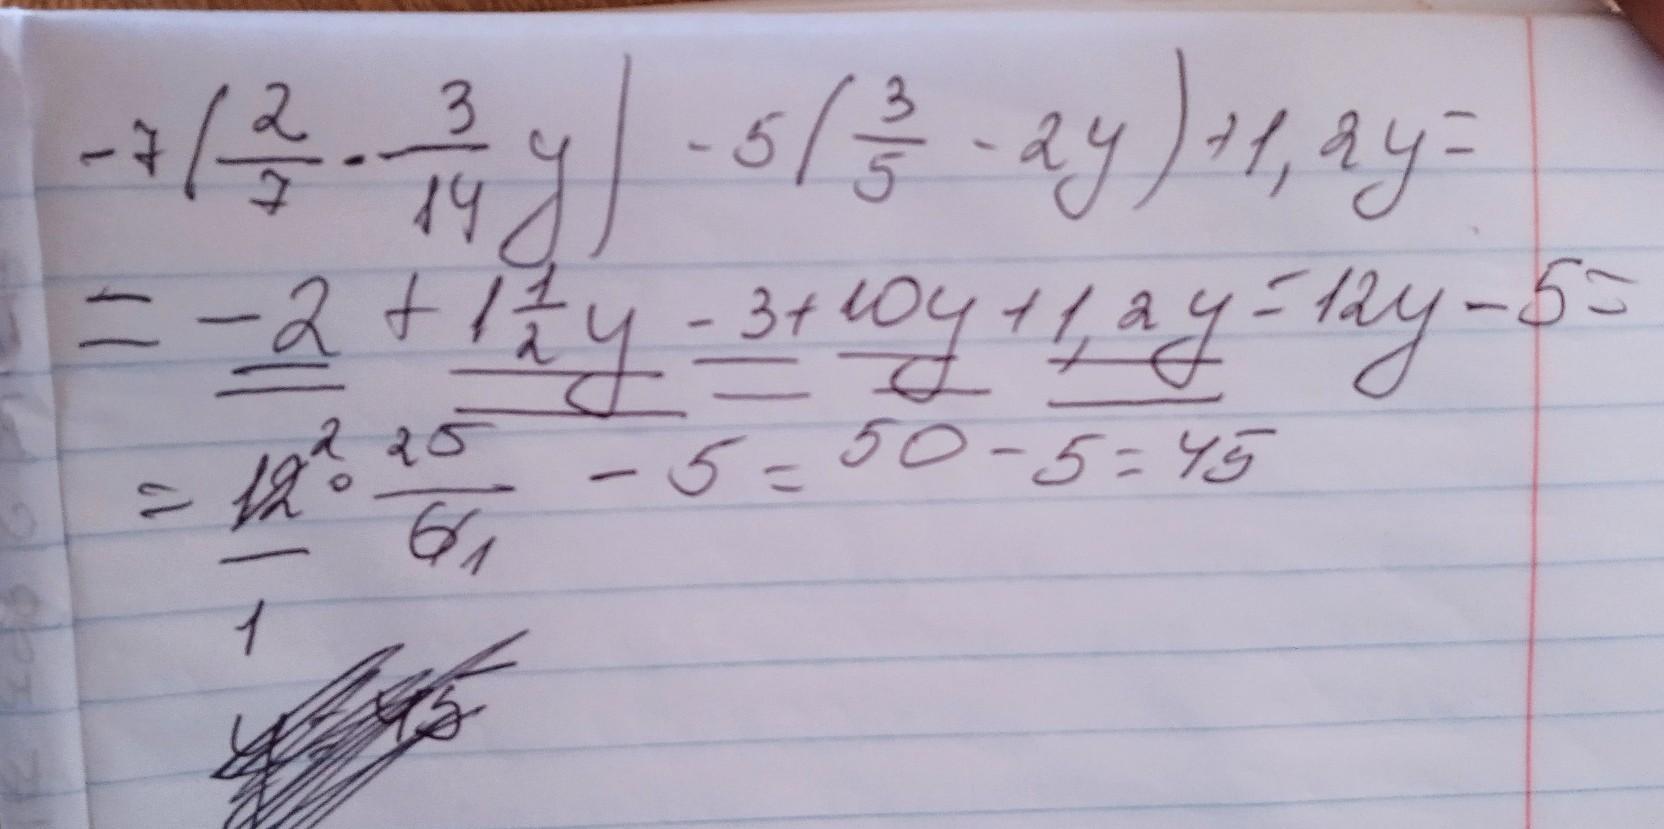 -7(2/7 - 3/14 y) - 5(3/5 - 2y) + 1,2y =
= -2 + 1 1/2 y - 3 + 10y + 1,2y = 12y - 5 =
= 12² · 25/6₁ - 5 = 50 - 5 = 45
1